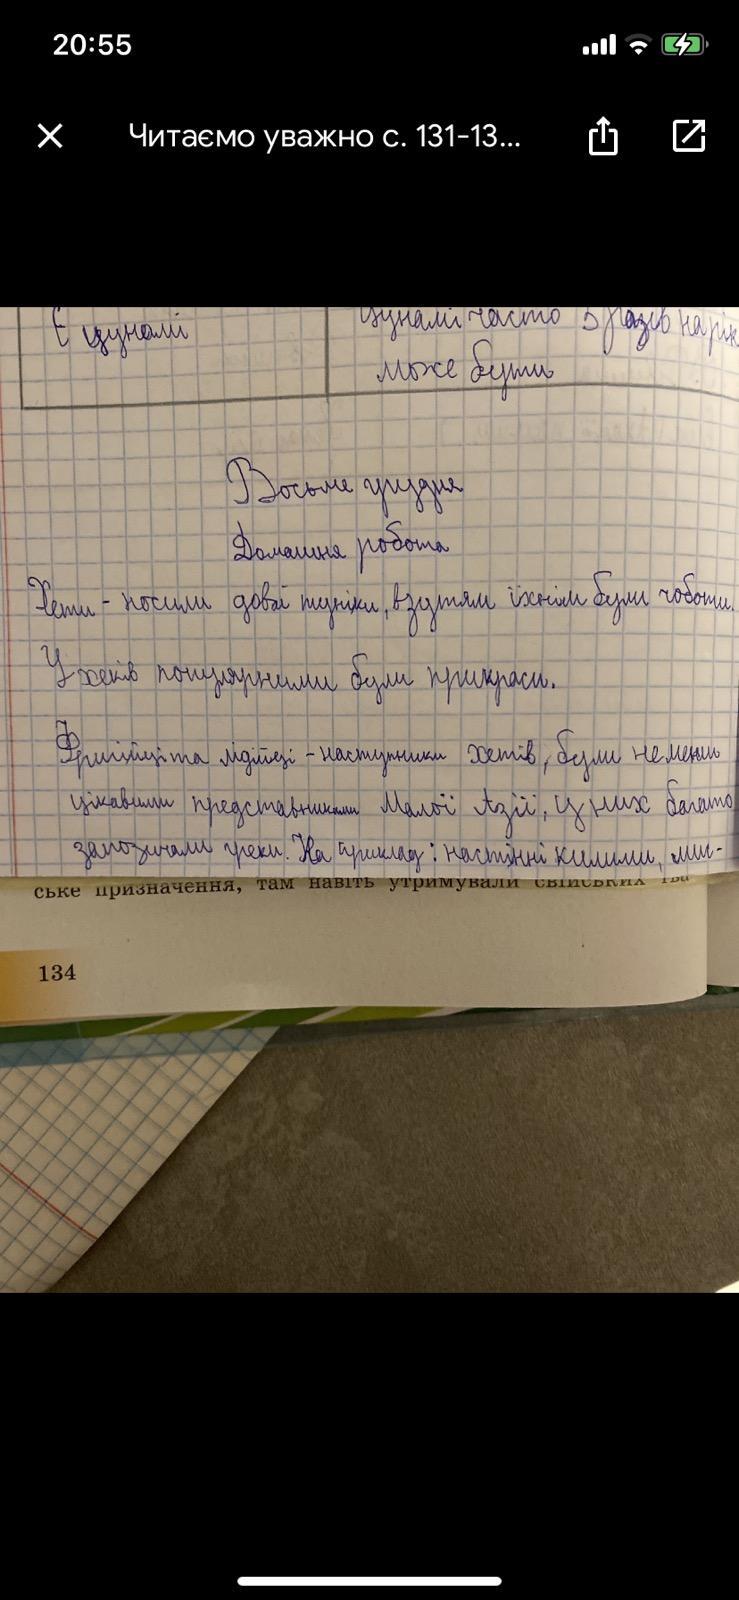 20:55
Читаємо уважно с. 131-13...
Є цунамі
цунамі часто 5 разів на рік
може бути
Восьме грудня
Домашня робота
Хети - носили довгі туніки, взуттям їхнім були чоботи.
У хеків популярними були прикраси.
Фригійці та лідійці - наступники хетів, були не менш
цікавими представниками Малої Азії, у них багато
запозичали греки. На приклад: настінні килими, мис-
ське призначення, там навіть утримували свійських
134